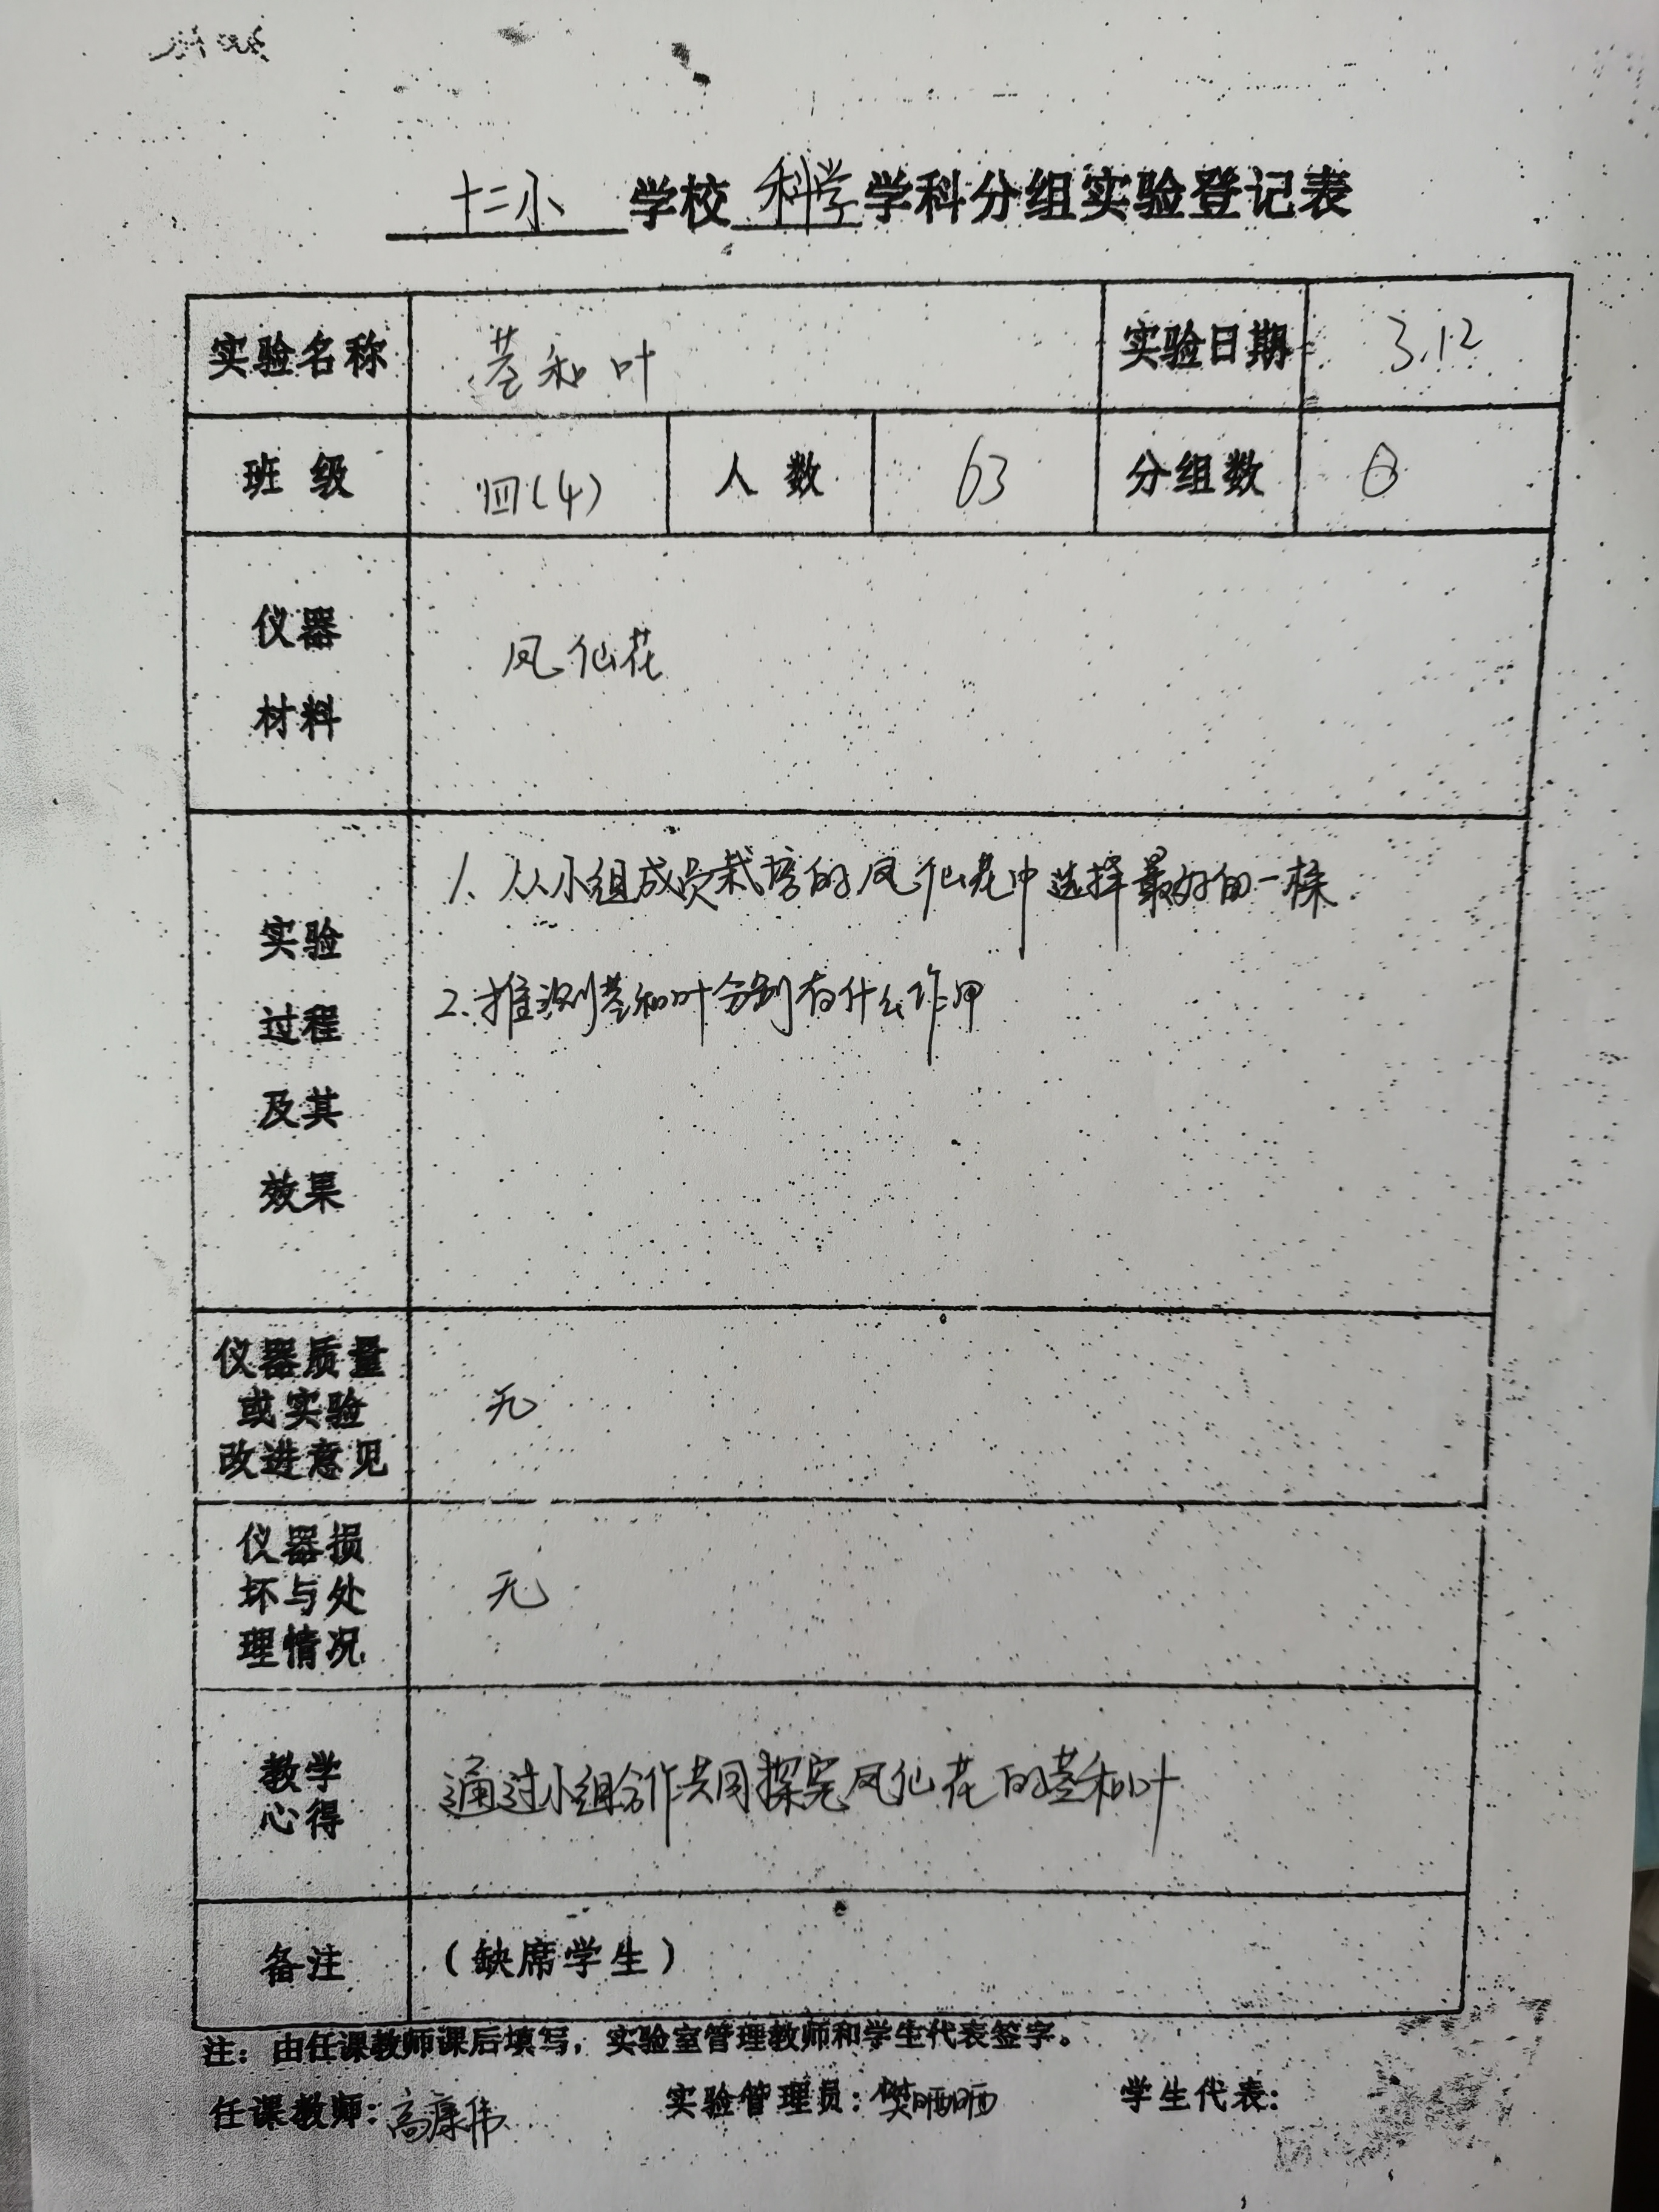 十二小 学校 科学 学科分组实验登记表
实验名称 茎和叶 实验日期 3.12
班级 四(4) 人数 63 分组数 8
仪器
材料
凤仙花
实验
过程
及其
效果
1、从小组成员栽培的凤仙花中选择最好的一棵.
2、推测茎和叶分别有什么作用
仪器质量
或实验
改进意见
无
仪器损
坏与处
理情况
无
教学
心得
通过小组合作共同探究凤仙花的茎和叶
备注 (缺席学生)
注：由任课教师课后填写，实验室管理教师和学生代表签字。
任课教师：高康伟 实验管理员：樊晒晒 学生代表：